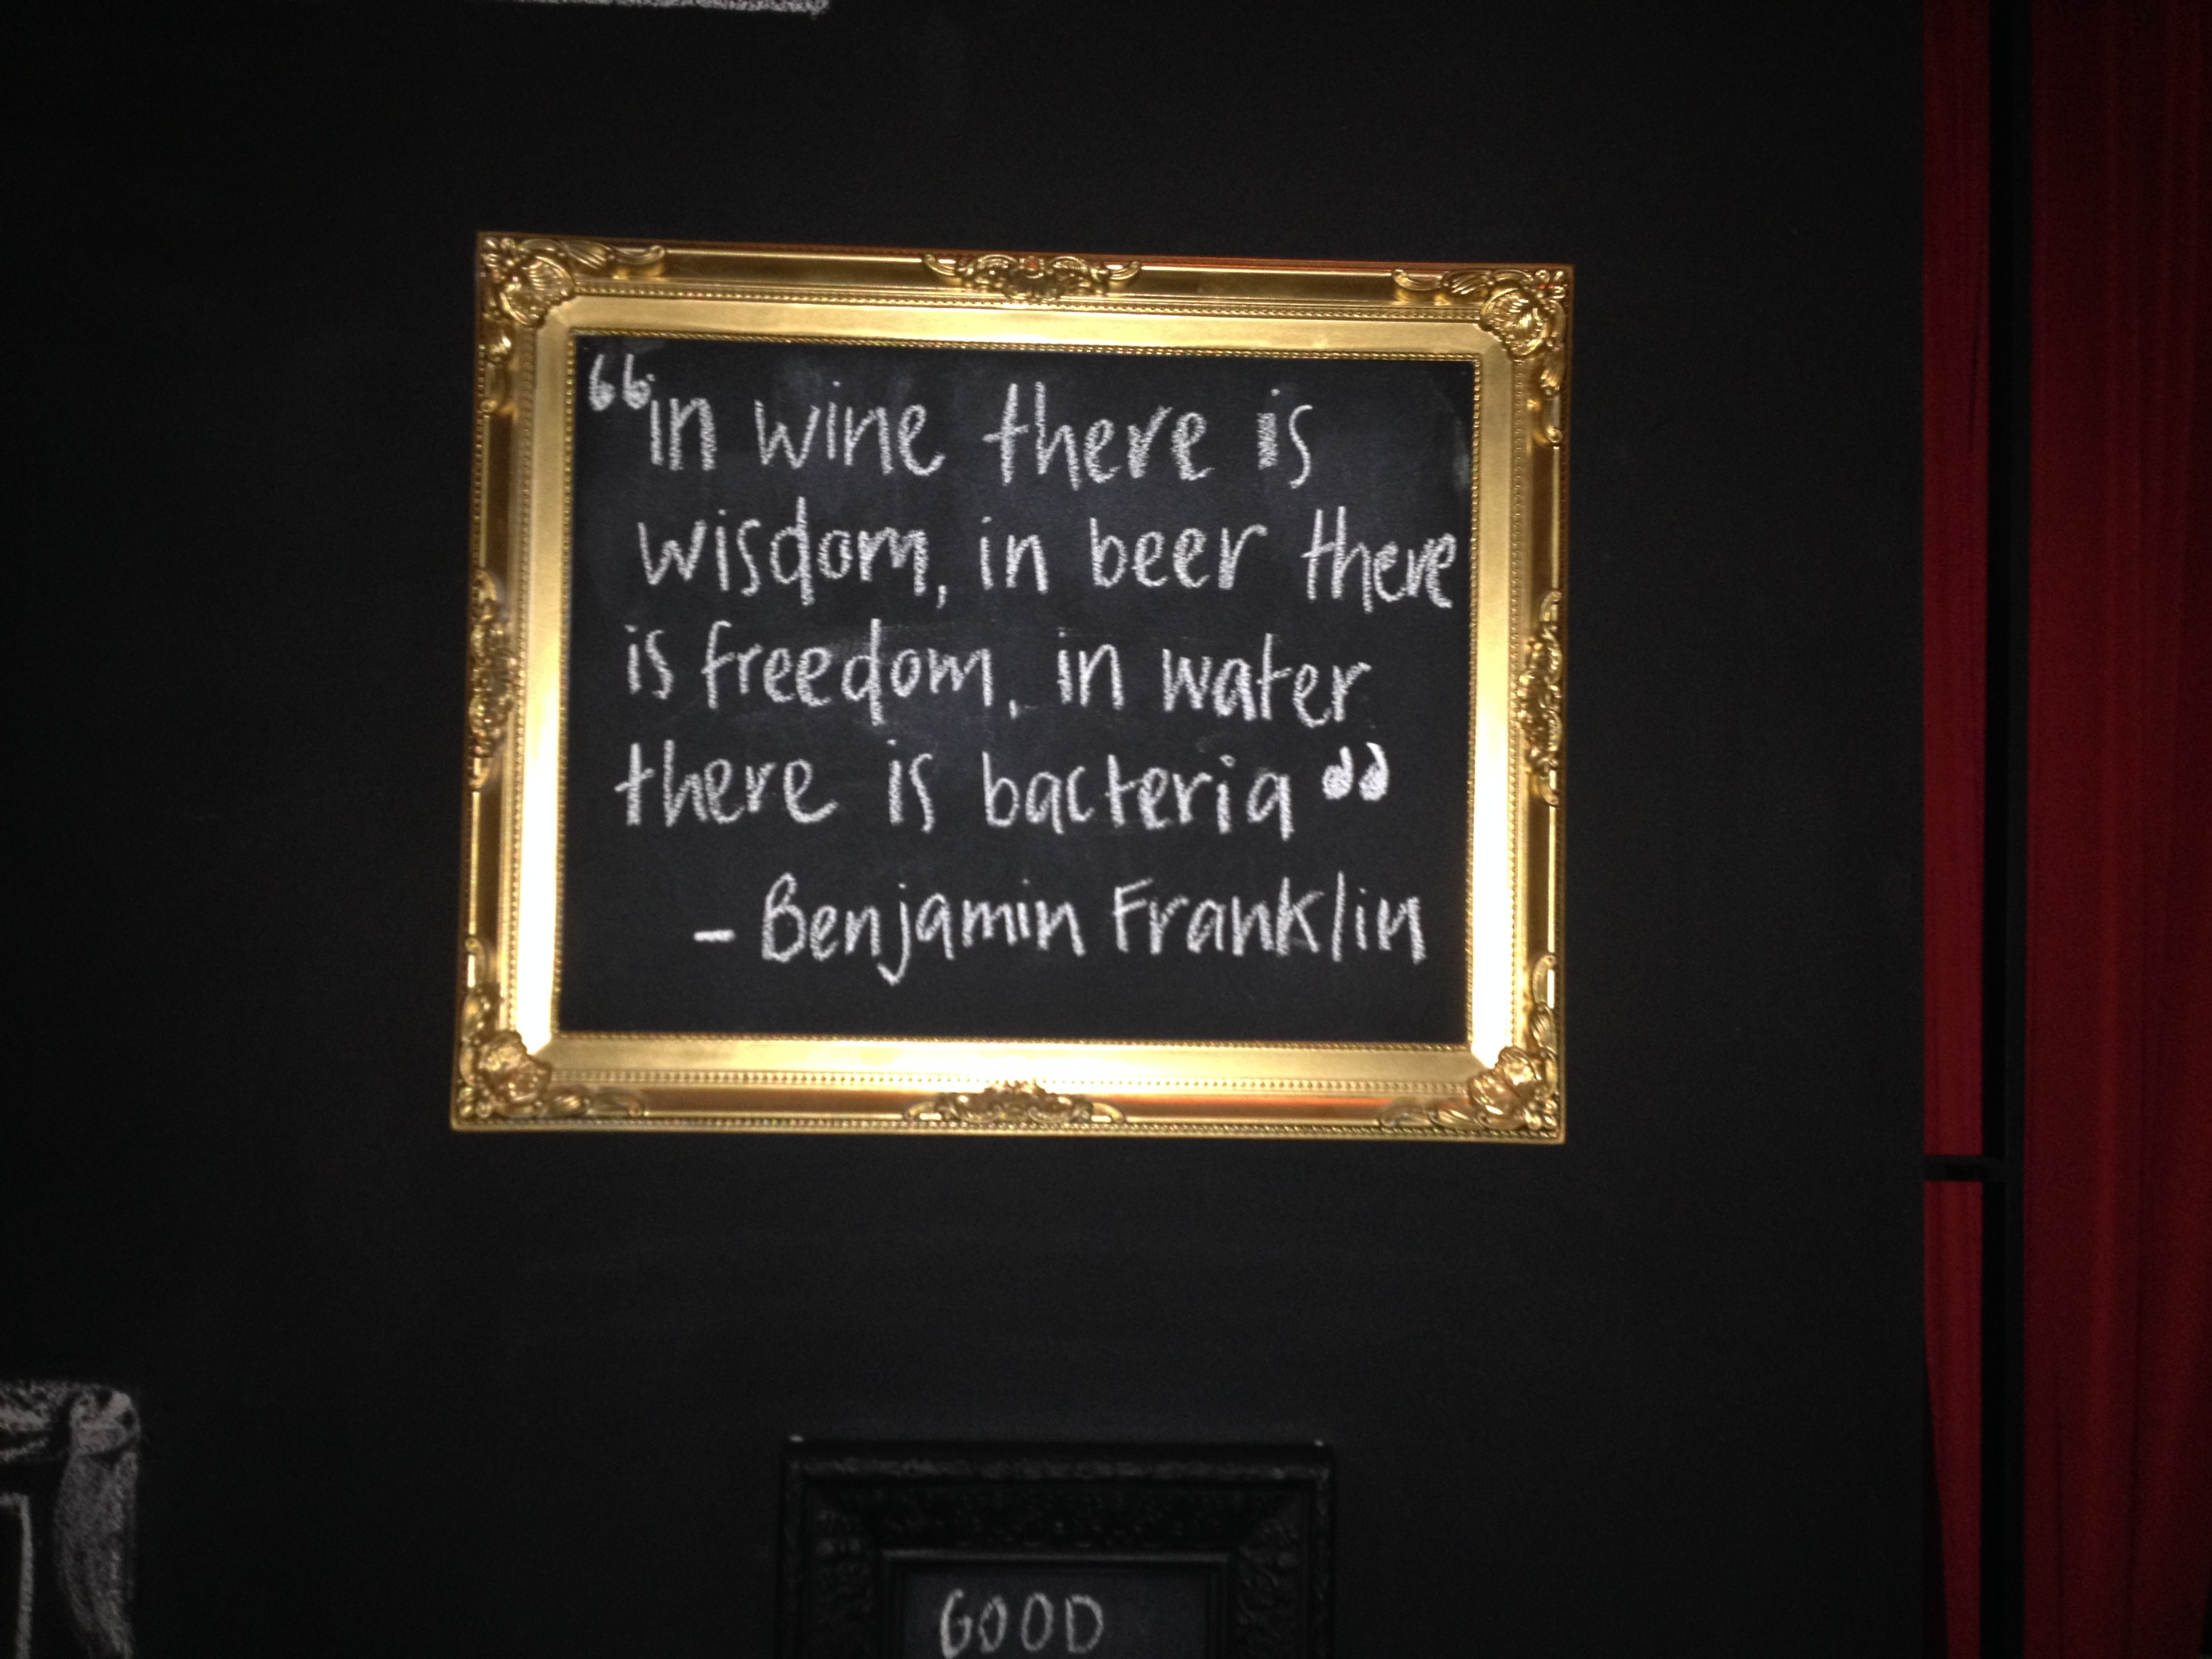 "in wine there is
wisdom, in beer there
is freedom, in water
there is bacteria"
- Benjamin Franklin
GOOD